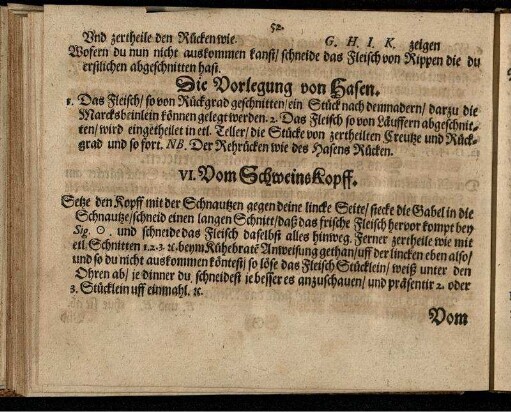 52.
Vnd zertheile den Rücken wie. G. H. I. K. zeigen
Wofern du nun nicht auskommen kanst/ schneide das Fleisch von Rippen die du
erstlichen abgeschnitten hast.
Die Vorlegung von Hasen.
1. Das Fleisch/ so von Rückgrad geschnitten/ ein Stück nach dem nadern/ darzu die
Marcksbeinlein können gelegt werden. 2. Das Fleisch so von Läuffern abgeschnit-
ten/ wird eingetheilet in etl. Teller/ die Stücke von zertheilten Creutze und Rück-
grad und so fort. NB. Der Rehrücken wie des Hasens Rücken.
VI. Vom SchweinsKopff.
Setze den Kopff mit der Schnautzen gegen deine lincke Seite/ stecke die Gabel in die
Schnautze/ schneid einen langen Schnitt/ daß das frische Fleisch hervor kompt bey
Sig. ☉. und schneide das Fleisch daselbst alles hinweg. Ferner zertheile wie mit
etl. Schnitten 1. 2. 3. ꝛc. beym Kühebrate Anweisung gethan/ uff der lincken eben also/
und so du nicht auskommen köntest/ so löse das Fleisch Stücklein/ weiß unter den
Ohren ab/ je dinner du schneidest je besser es anzuschauen/ und präsentir 2. oder
3. Stücklein uff einmahl. ꝛc.
Vom